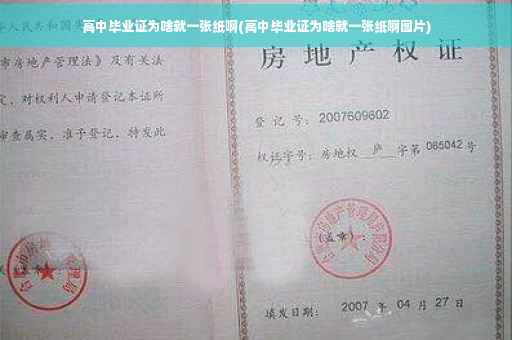 高中毕业证为啥就一张纸啊(高中毕业证为啥就一张纸啊图片)
人民共和国
市房地产管理法》及有关法
定，对权利人申请登记本证所
审查属实，准予登记，特发此
房地产权证
登记号：2007609602
权证字号：房地权 庐 字第 085042 号
(盖章)：
房地产管理局
填发日期：2007 年 04 月 27 日